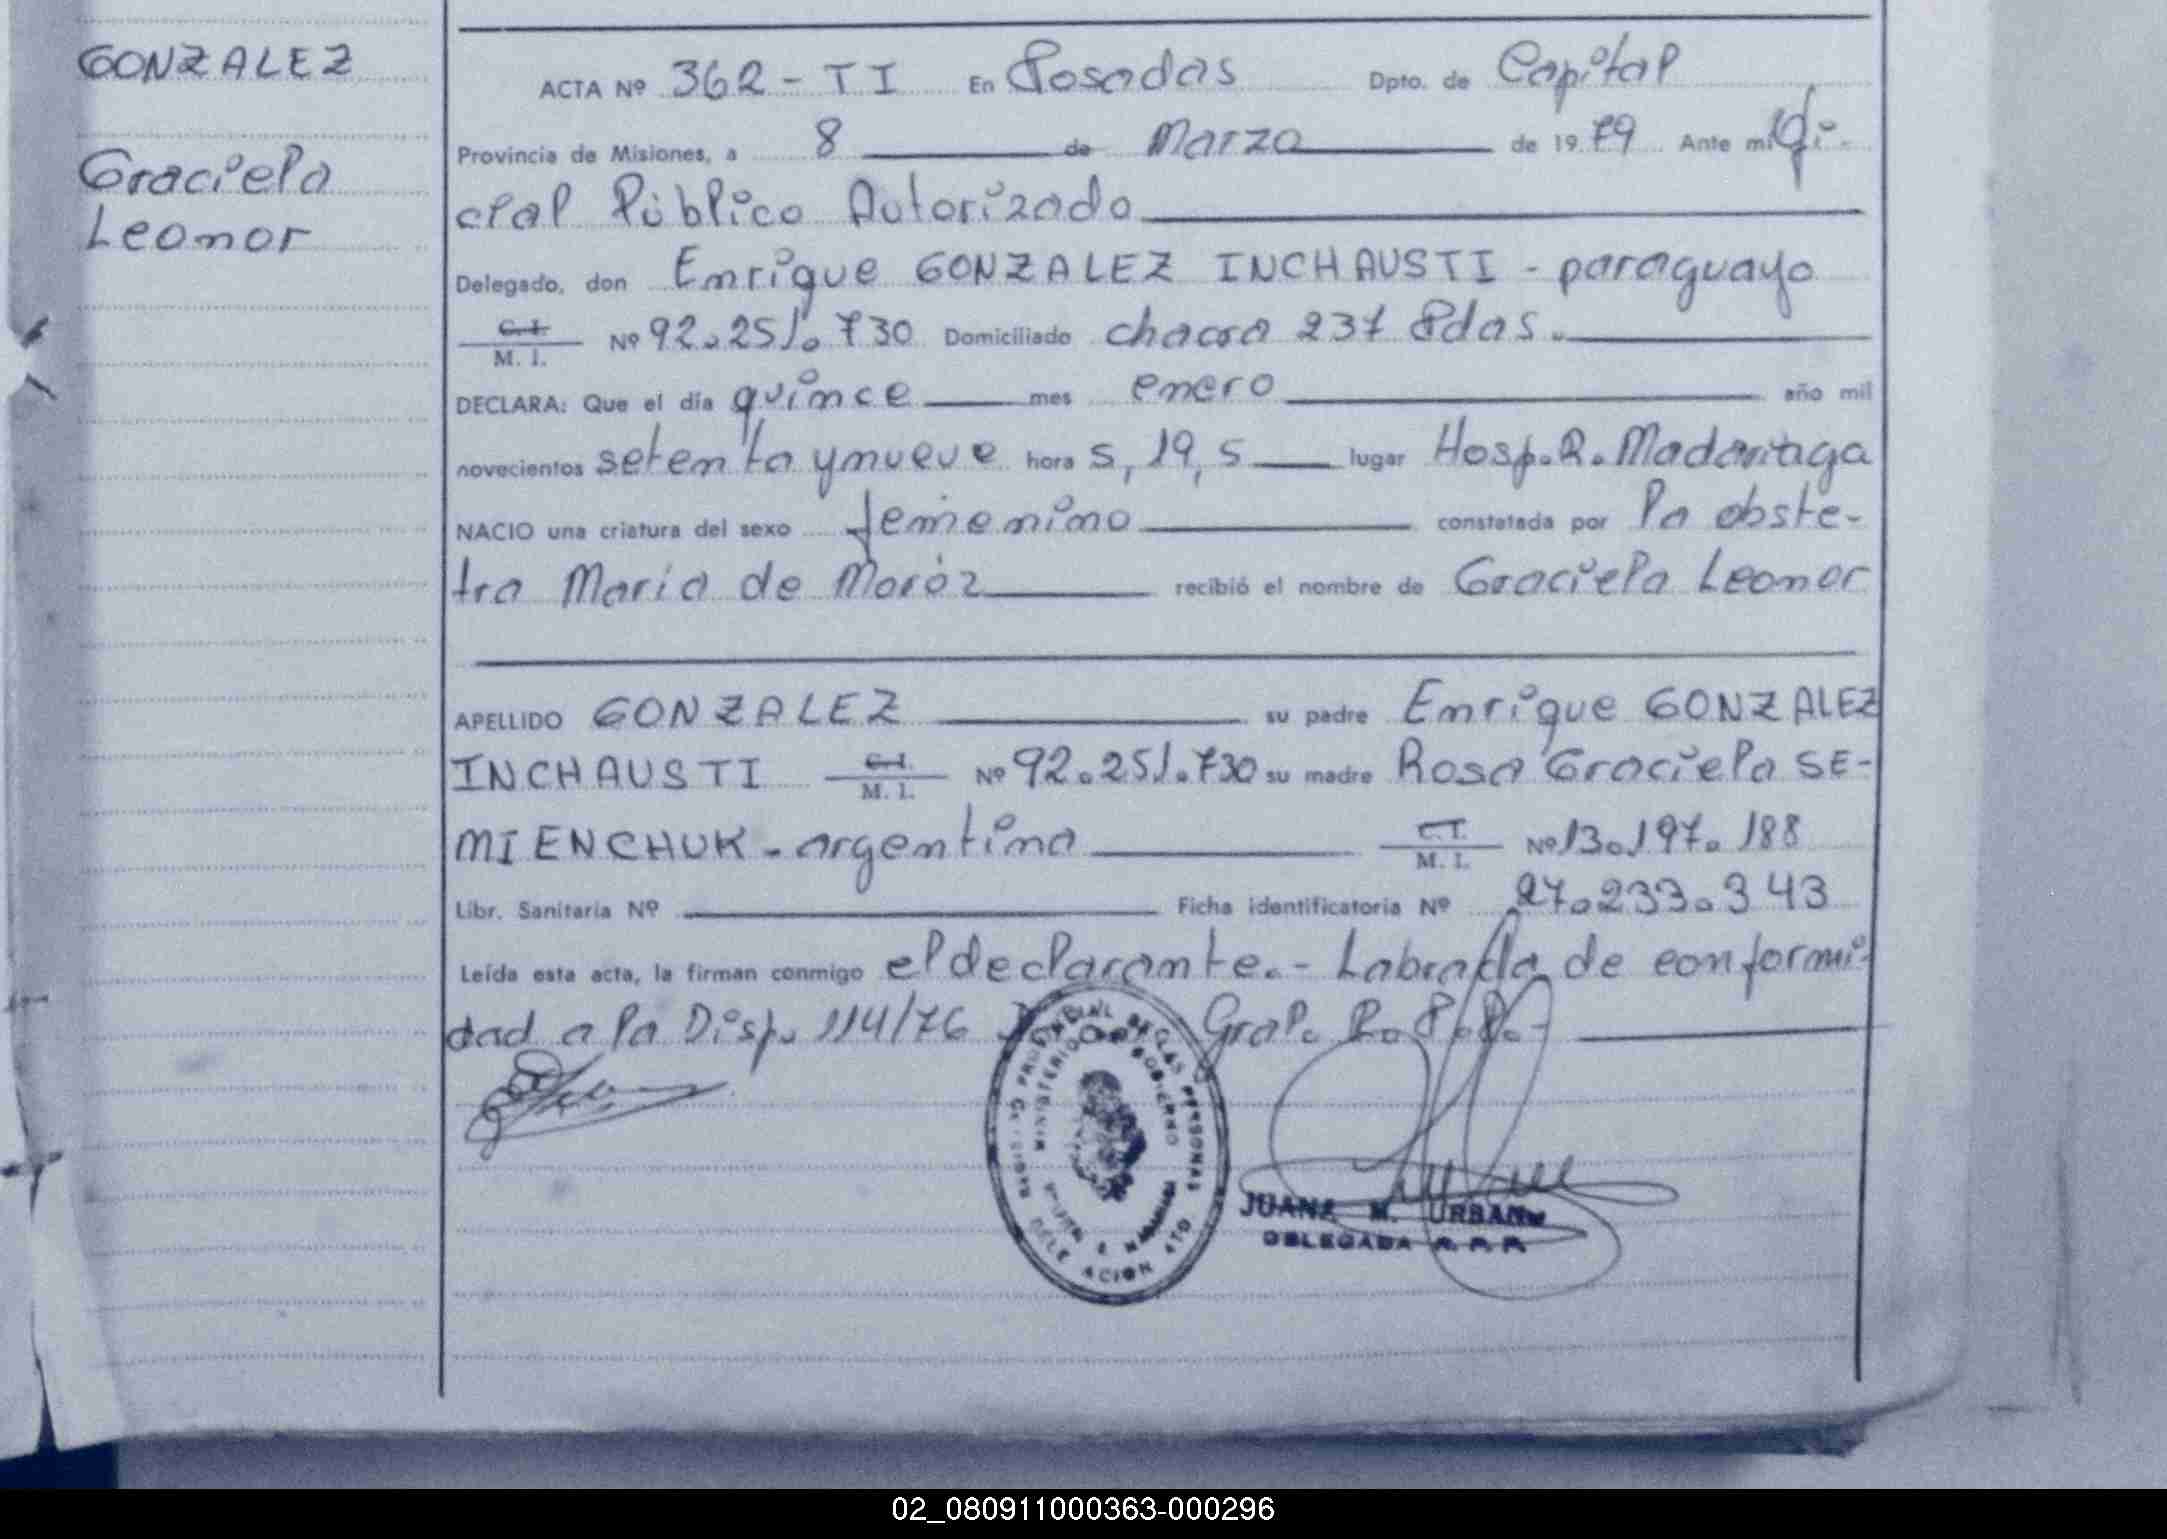 GONZALEZ
Graciela
Leonor
ACTA Nº 362-TI En Posadas Dpto. de Capital
Provincia de Misiones, a 8 de Marzo de 1979 Ante mi Ofi-
cial Público Autorizado
Delegado, don Enrique GONZALEZ INCHAUSTI - paraguayo
C.I. / M. I. Nº 92.251.730 Domiciliado chacra 237 Pdas.
DECLARA: Que el día quince mes enero año mil
novecientos setenta y nueve hora s, 19,5 lugar Hosp. R. Madariaga
NACIO una criatura del sexo femenino constatada por la obste-
tra María de Moróz recibió el nombre de Graciela Leonor
APELLIDO GONZALEZ su padre Enrique GONZALEZ
INCHAUSTI C.I. / M. I. Nº 92.251.730 su madre Rosa Graciela SE-
MIENCHUK - argentina C.I. / M. I. Nº 13.197.188
Libr. Sanitaria Nº Ficha identificatoria Nº 27.233.343
Leída esta acta, la firman conmigo el declarante.- Labrada de conformi-
dad a la Disp. 114/76 Gral. R.P.P.-
PROVINCIAL DE LAS PERSONAS
MINISTERIO DE GOBIERNO
DELEGACION 4TO
JUANA M. URBAN
DELEGADA R. P. P.
02_080911000363-000296